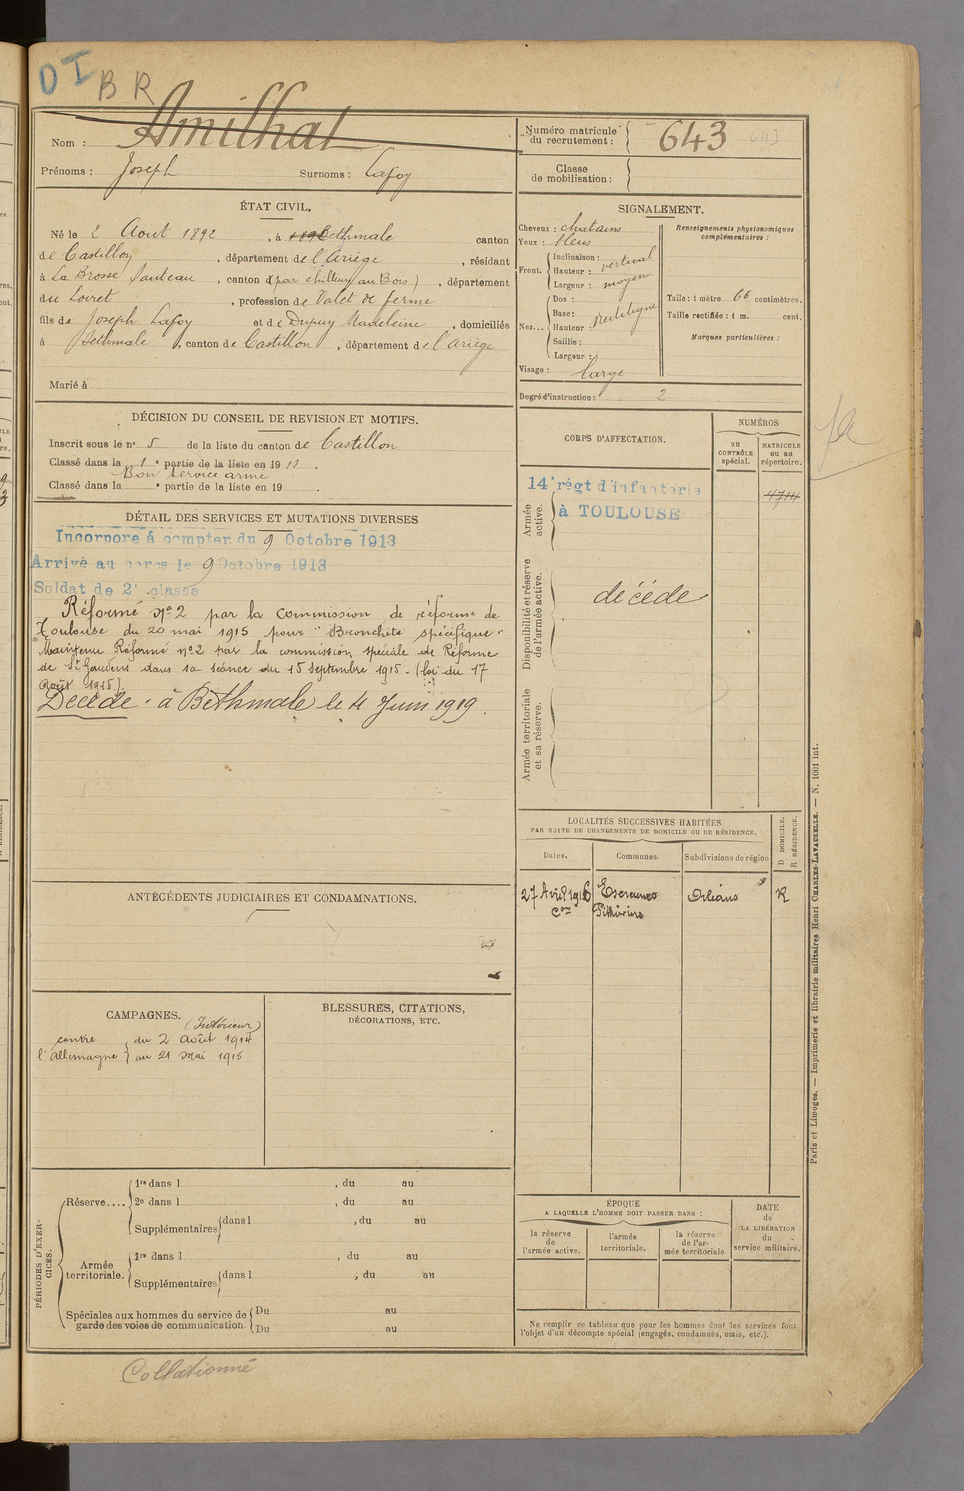 DI BR
Nom : Amilhat
Prénoms : Joseph Surnoms : Lafoy
Numéro matricule du recrutement : 643
Classe de mobilisation :
ÉTAT CIVIL.
Né le 2 Août 1892, à Bethmale canton
de Castillon, département de l'Ariège, résidant
à La Brosse, canton d (par chilleurs au Bois), département
du Loiret, profession de Valet de ferme
fils de Joseph Lafoy et de Dupuy Madeleine, domiciliés
à Bethmale, canton de Castillon, département de l'Ariège
Marié à
SIGNALEMENT.
Cheveux : chatains
Yeux : bleus
Front. Inclinaison : vertical
Hauteur :
Largeur : moyen
Nez... Dos :
Base :
Hauteur : Rectiligne
Saillie :
Largeur :
Visage : large
Renseignements physionomiques complémentaires :
Taille : 1 mètre 66 centimètres.
Taille rectifiée : 1 m. cent.
Marques particulières :
Degré d'instruction : 2
DÉCISION DU CONSEIL DE REVISION ET MOTIFS.
Inscrit sous le n° 5 de la liste du canton de Castillon
Classé dans la 1e partie de la liste en 1913.
Bon service armé
Classé dans la e partie de la liste en 19 .
DÉTAIL DES SERVICES ET MUTATIONS DIVERSES
Incorporé à compter du 9 Octobre 1913
Arrivé au corps le 9 Octobre 1913
Soldat de 2e classe
Réformé N° 2 par la Commission de réforme de
Toulouse du 20 mai 1915 pour "Bronchite spécifique"
Maintenu Réformé n°2 par la commission spéciale de Réforme
de St Gaudens dans sa séance du 15 septembre 1915 - (loi du 17
Août 1915.)
Décédé à Bethmale le 4 Juin 1919.
CORPS D'AFFECTATION.
NUMÉROS
au CONTRÔLE spécial.
MATRICULE ou au répertoire.
Armée active.
14e régt d'infanterie 4714
à TOULOUSE
Disponibilité et réserve de l'armée active.
décédé
Armée territoriale et sa réserve.
LOCALITÉS SUCCESSIVES HABITÉES
PAR SUITE DE CHANGEMENTS DE DOMICILE OU DE RÉSIDENCE.
Dates. Communes. Subdivisions de région D. DOMICILE. R. RÉSIDENCE.
27 Avril 1916 Escrennes Orléans R
con Pithiviers
ANTÉCÉDENTS JUDICIAIRES ET CONDAMNATIONS.
CAMPAGNES.
(Intérieur)
contre l'Allemagne du 2 Août 1914
au 21 Mai 1915
BLESSURES, CITATIONS,
DÉCORATIONS, ETC.
PÉRIODES D'EXERCICES.
Réserve.... 1re dans l , du au
2e dans l , du au
Supplémentaires dans l , du au
Armée territoriale. 1re dans l , du au
Supplémentaires dans l , du au
Spéciales aux hommes du service de garde des voies de communication. Du au
Du au
ÉPOQUE
A LAQUELLE L'HOMME DOIT PASSER DANS :
la réserve de l'armée active.
l'armée territoriale.
la réserve de l'armée territoriale
DATE de LA LIBÉRATION du service militaire.
Ne remplir ce tableau que pour les hommes dont les services font
l'objet d'un décompte spécial (engagés, condamnés, omis, etc.).
Paris et Limoges. — Imprimerie et librairie militaires Henri CHARLES-LAVAUZELLE. — N. 1001 int.
Collationné